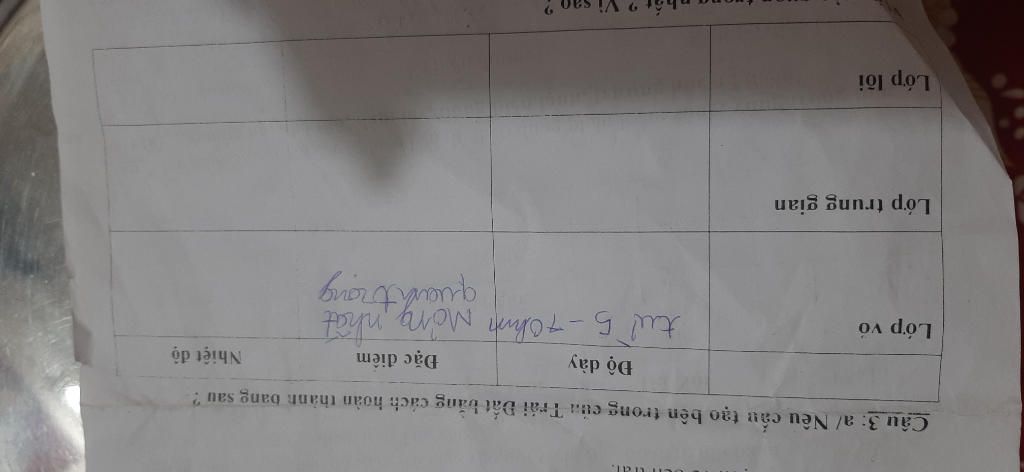 Câu 3: a/ Nêu cấu tạo bên trong của Trái Đất bằng cách hoàn thành bảng sau ?
Độ dày Đặc điểm Nhiệt độ
Lớp vỏ từ 5 - 70km Mỏng nhất
quan trọng
Lớp trung gian
Lớp lõi
trọng nhất ? Vì sao ?